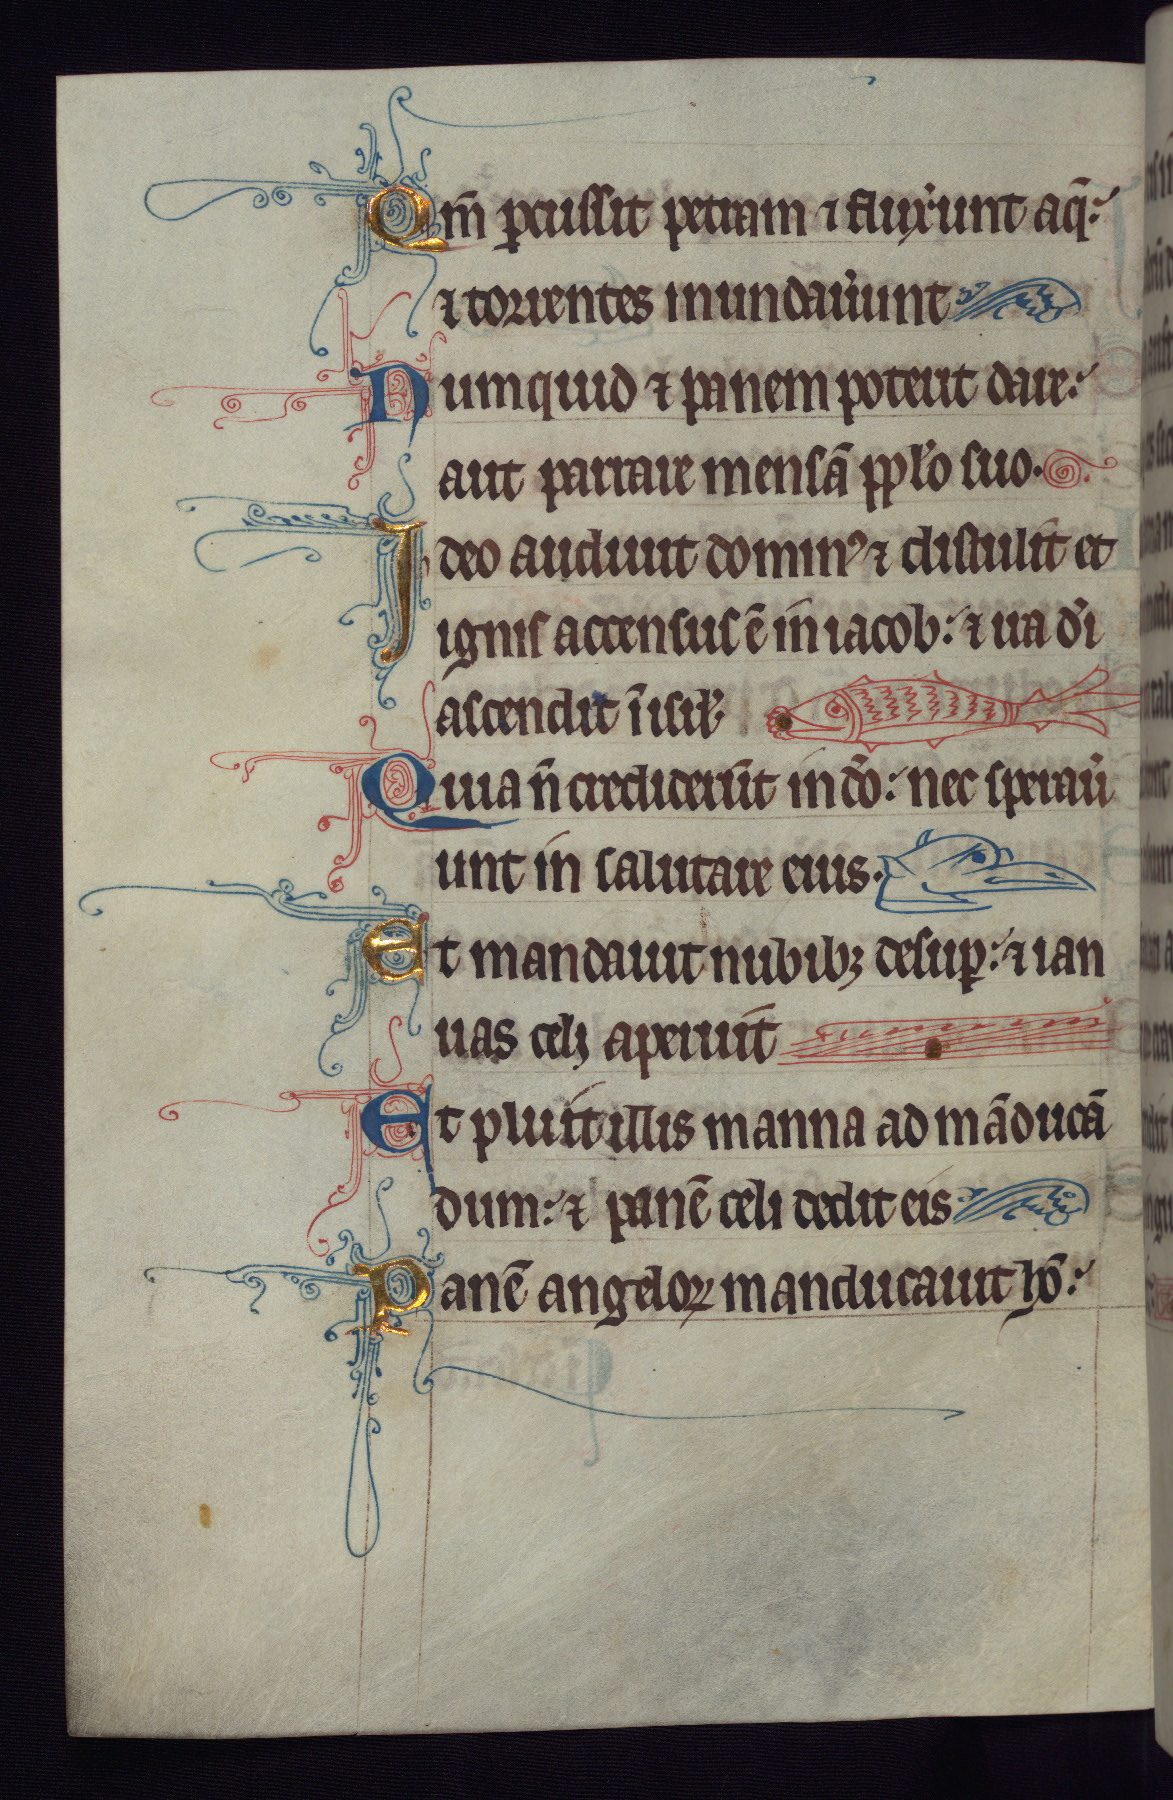 Qm̄ ꝑcussit petram ⁊ fluxͥunt aq̄:
⁊ torrentes inundaũunt
Numquid ⁊ panem poterit dare:
aut parare mensā pp̱lo suo.
Ideo audiuit dominꝰ ⁊ distulit et
ignis accensus ē in iacob: ⁊ ira dñi
ascendit ī isrl̃
Quia ñ crediderūt in dō: nec speraũ
unt in salutare eius.
Et mandauit nubibꝫ desuꝑ: ⁊ ian
uas celi aperuit
Et pluit illis manna ad māducā
dum: ⁊ panē celi dedit eis
Panē angeloꝝ manducauit hō: